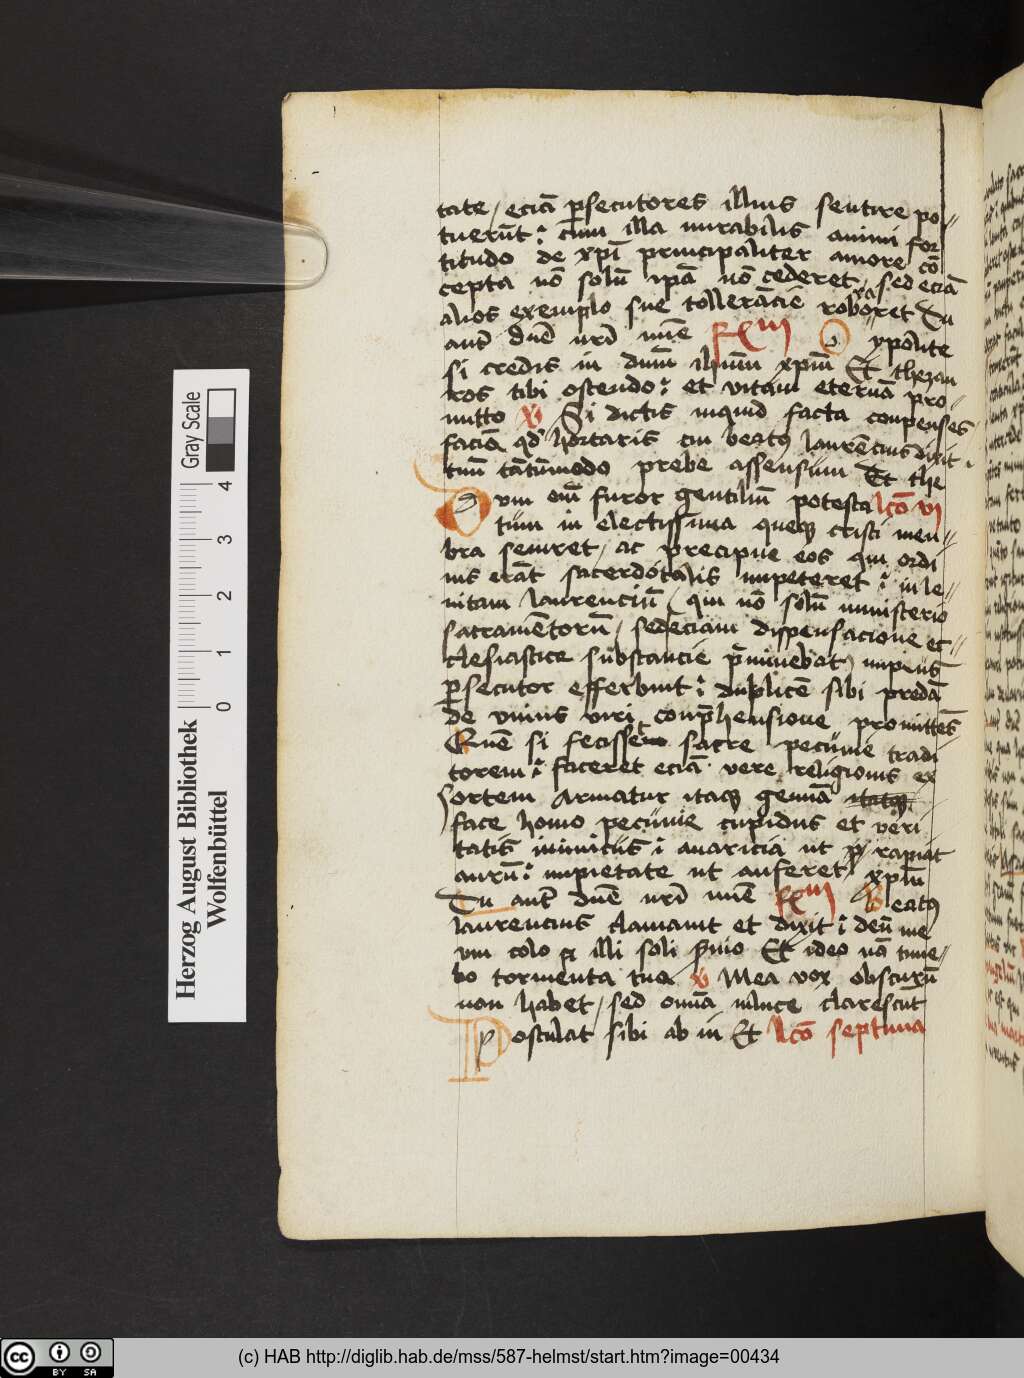 tate / eciā ꝑsecutores illius sentire po-
tuerūt : cum illa mirabilis animi for
titudo de xp̄i principaliter amore cō
cepta nō solū ip̄a nō cederet / sed eciā
alios exemplo sue tollerācie roboret Tu
aut̄ dn̄e nr̄i mīe O ypolite
si credis in dn̄m ihm̄ xpm̄ Et thezau
ros tibi ostendo : et vitam eternā pro-
mitto Si dictis inquid facta conpenses
faciā qd hortaris cui beatꝰ laurēcius dixit
tuū tātūmodo prebe assensum Et the
Dum em̄ furor gentiliū potesta lcō vi
tum in electissima queqꝫ cristi mem
bra seuiret / ac precipue eos qui ordi
nis erāt sacerdotalis impeteret : in le-
uitam laurenciū / qui nō solū ministerio
sacramētorū / sedeciam dispensacione ec-
clesiastice substancie p̄minebat / impius
ꝑsecutor efferbuit : duplicē sibi predā
de vnius viri conp̄hensione promittēs
Quē si fecisset sacre pecunie tradi
torem : faceret eciā vere religionis ex
sortem Armatur itaqꝫ gemiā itaqꝫ
face homo pecunie cupidus et veri
tatis inimicus : auaricia ut rapiat
aurū : impietate ut auferet xpm̄
Tu aut̄ dn̄e nr̄i mīe Beatꝰ
laurencius clamauit et dixit : deū me
um colo et illi soli ẜuio Et ideo nō time-
bo tormenta tua Mea vox obscurū
non habet / sed omīa in luce clarescūt
Postulat sibi ab in Et lcō septima
Herzog August Bibliothek
Wolfenbüttel
Gray Scale
0 1 2 3 4
cc BY SA
(c) HAB http://diglib.hab.de/mss/587-helmst/start.htm?image=00434